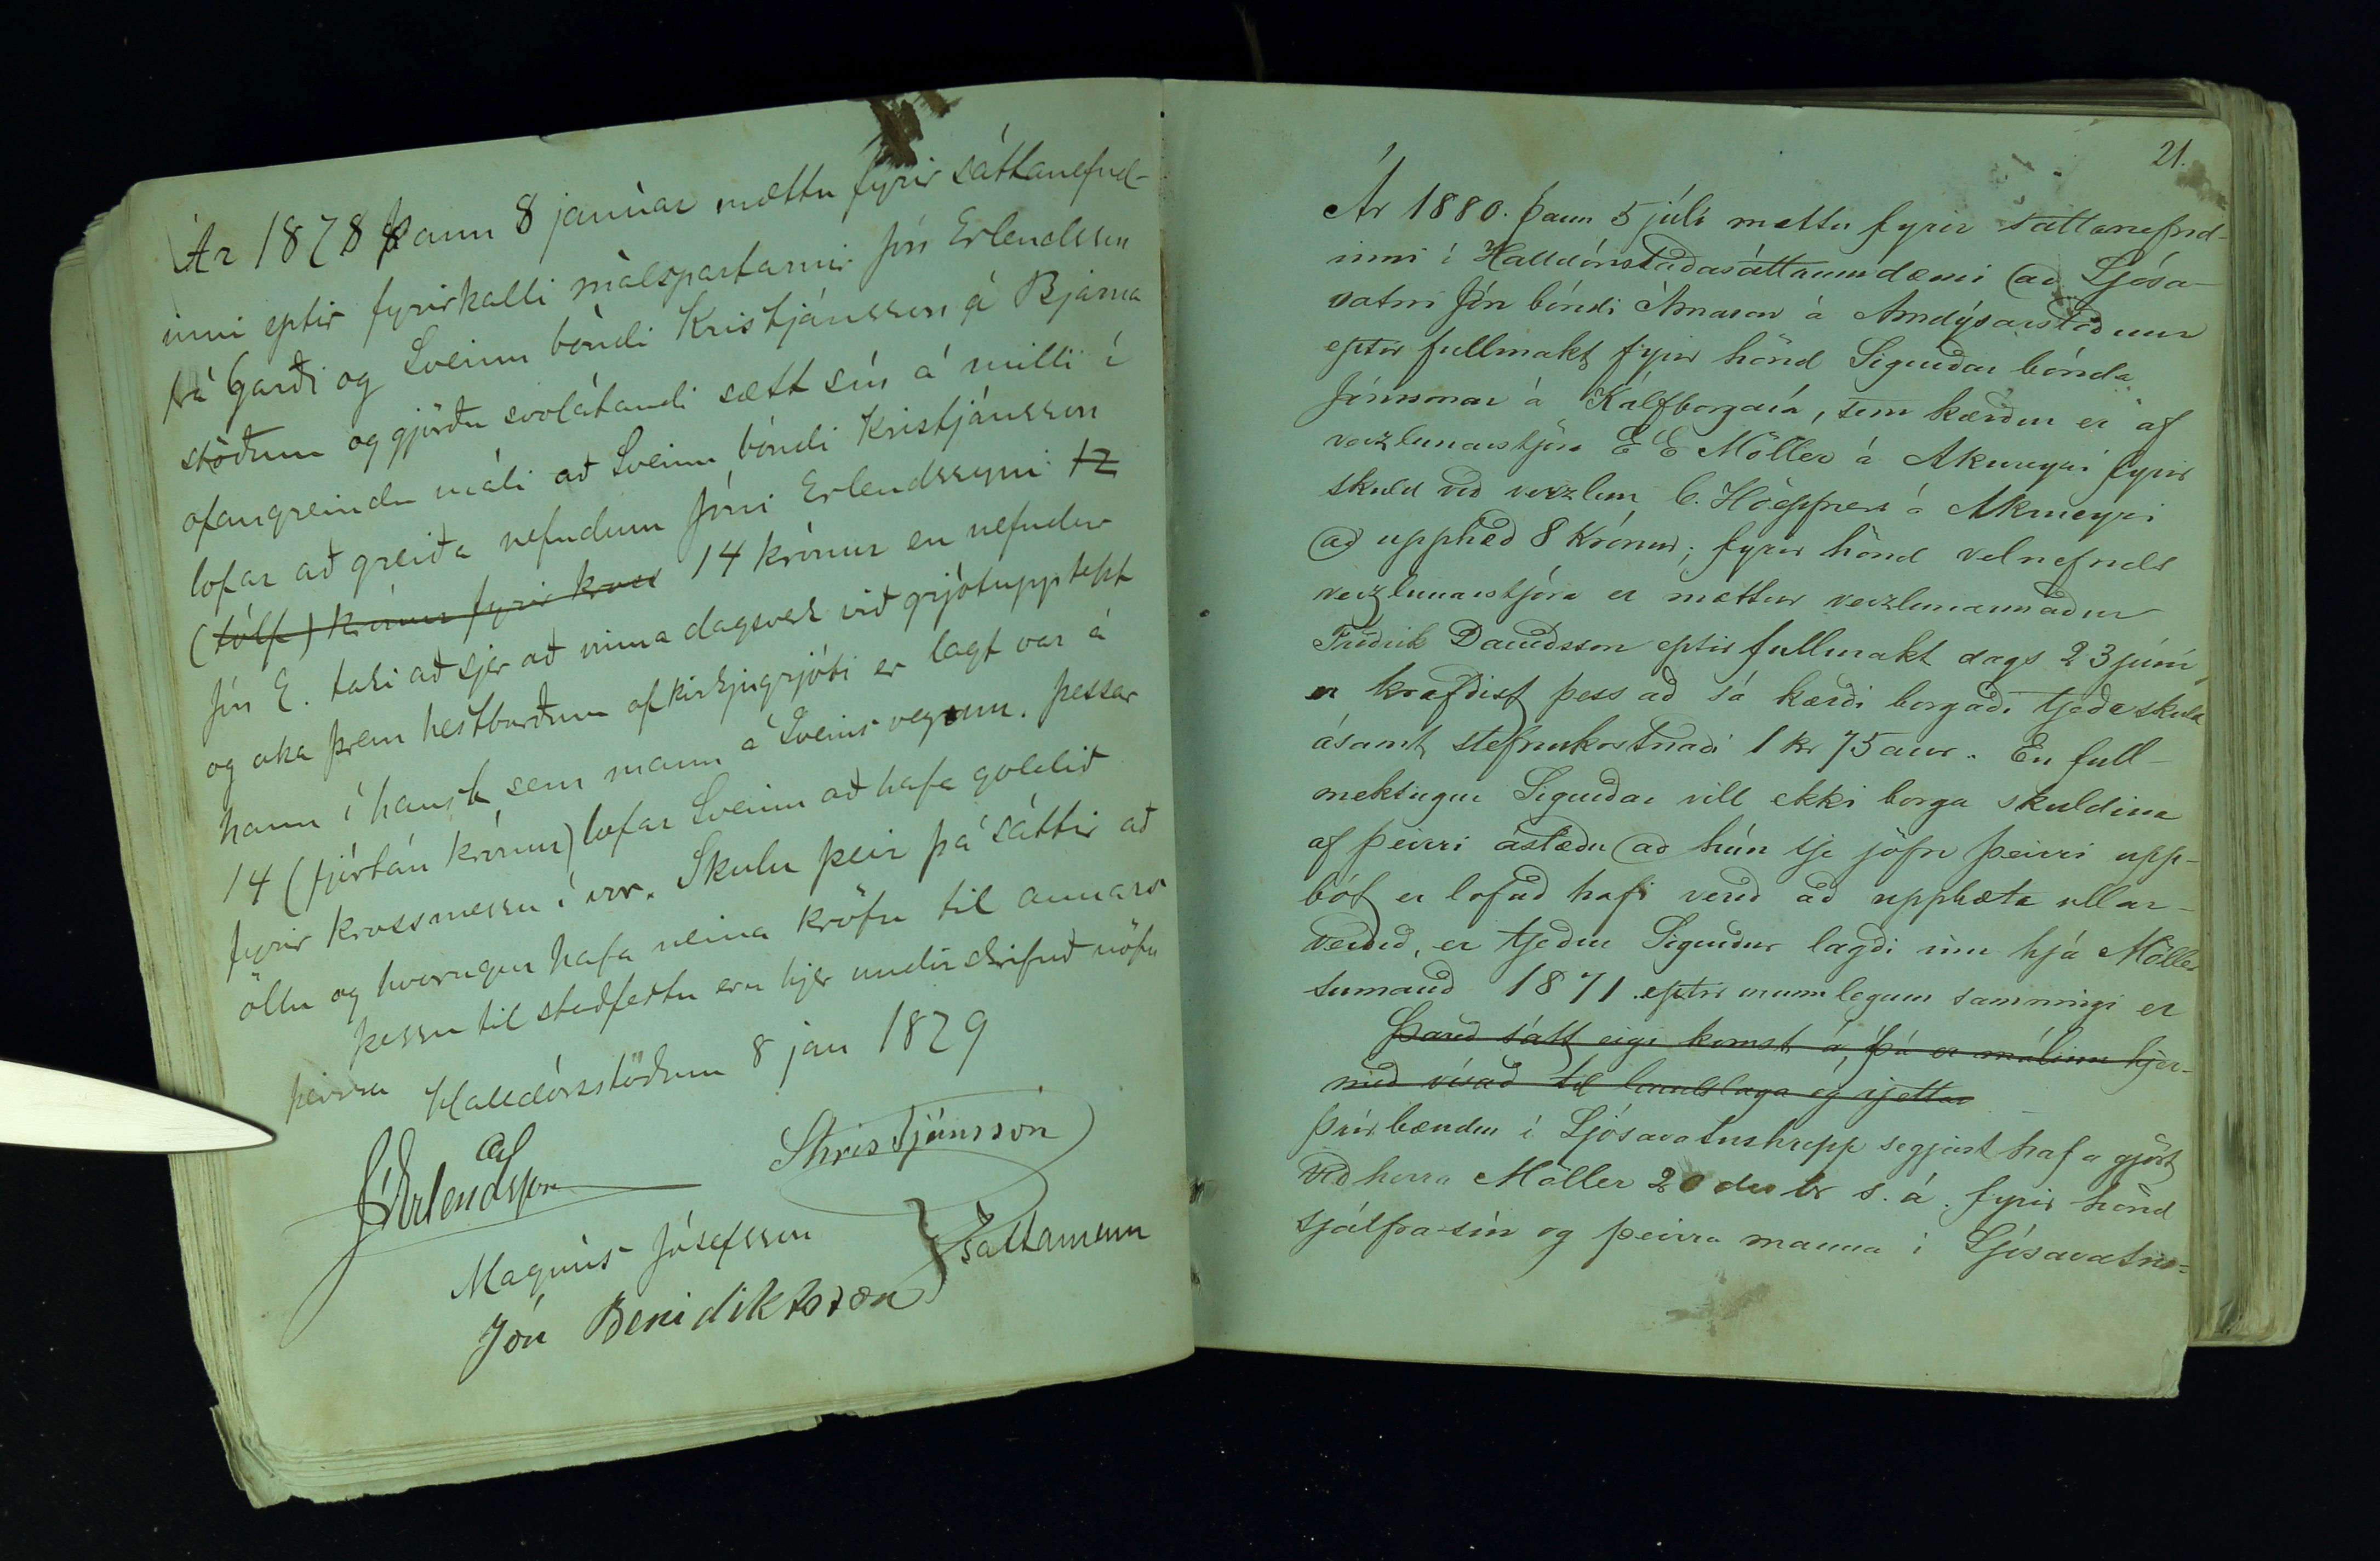 Ár 1878 þann 8 janúar mættu fyrir sáttanefnd-
inni eptir fyrirkalli málspartarnir Jón Erlendsson
frá Garði og Sveinn bóndi Kristjánsson á Bjarna
stöðum og gjörðu svolátandi sætt sín á milli í
ofangreindu máli að Sveinn bóndi Kristjánsson
lofar að greiða nefndum Jóni Erlendssyni 12
(tólf) krónur fyrir kross 14 krónur en nefndur
Jón E. taki að sjer að vinna dagsverk við grjótupptekt
og aka þrem hestburðum af kirkjugrjóti er lagt var á
hann í haust sem mann á Sveins vegum. Þessar
14 (fjórtán krónur) lofar Sveinn að hafa goldið
fyrir krossmessu í vor. Skulu þeir þá sáttir að
öllu og hvorugur hafa neina kröfu til annars
þessu til staðfestu eru hjer undirskrifuð nöfn
þeirra Halldórsstöðum 8 jan 1879
JErlendsson
SKristjánsson
Magnús Jósefsson
Jón Benidiktsson } sáttamenn
21.
Ár 1880. þann 5 júlí mættu fyrir sáttanefnd-
inni í Halldórsstaðasáttaumdæmi að Ljósa-
vatni Jón bóndi Árnason á Arndýsarstöðum
eptir fullmakt fyrir hönd Sigurðar bónda
Jónssonar á Kálfborgará, sem kærður er af
verzlunarstjóra E E Möller á Akureyri fyrir
skuld við verzlun C. Höepfners á Akureyri
að upphæð 8 Krónur; fyrir hönd velnefnds
verzlunarstjóra er mættur verzlunarmaður
Friðrik Davíðsson eptir fullmakt dags 23 júní,
er krafðist þess að sá kærði borgaði tjeða skuld
ásamt stefnukostnaði 1 kr 75 aur. En full-
mektugur Sigurðar vill ekki borga skuldina
af þeirri ástæðu að hún sje jöfn þeirri upp-
bót er lofuð hafi verið að uppbæta ullar-
verðið, er tjeður Sigurður lagði inn hjá Möller
sumarið 1871 eptir munnlegum samningi er
Þareð sátt eigi komst á, þá er málinu hjer-
með vísað til landslaga og rjettar
þrír bændur í Ljósavatnshrepp segjast hafa gjört
við herra Möller 20 des br s. á. fyrir hönd
sjálfra sín og þeirra manna í Ljósavatns=